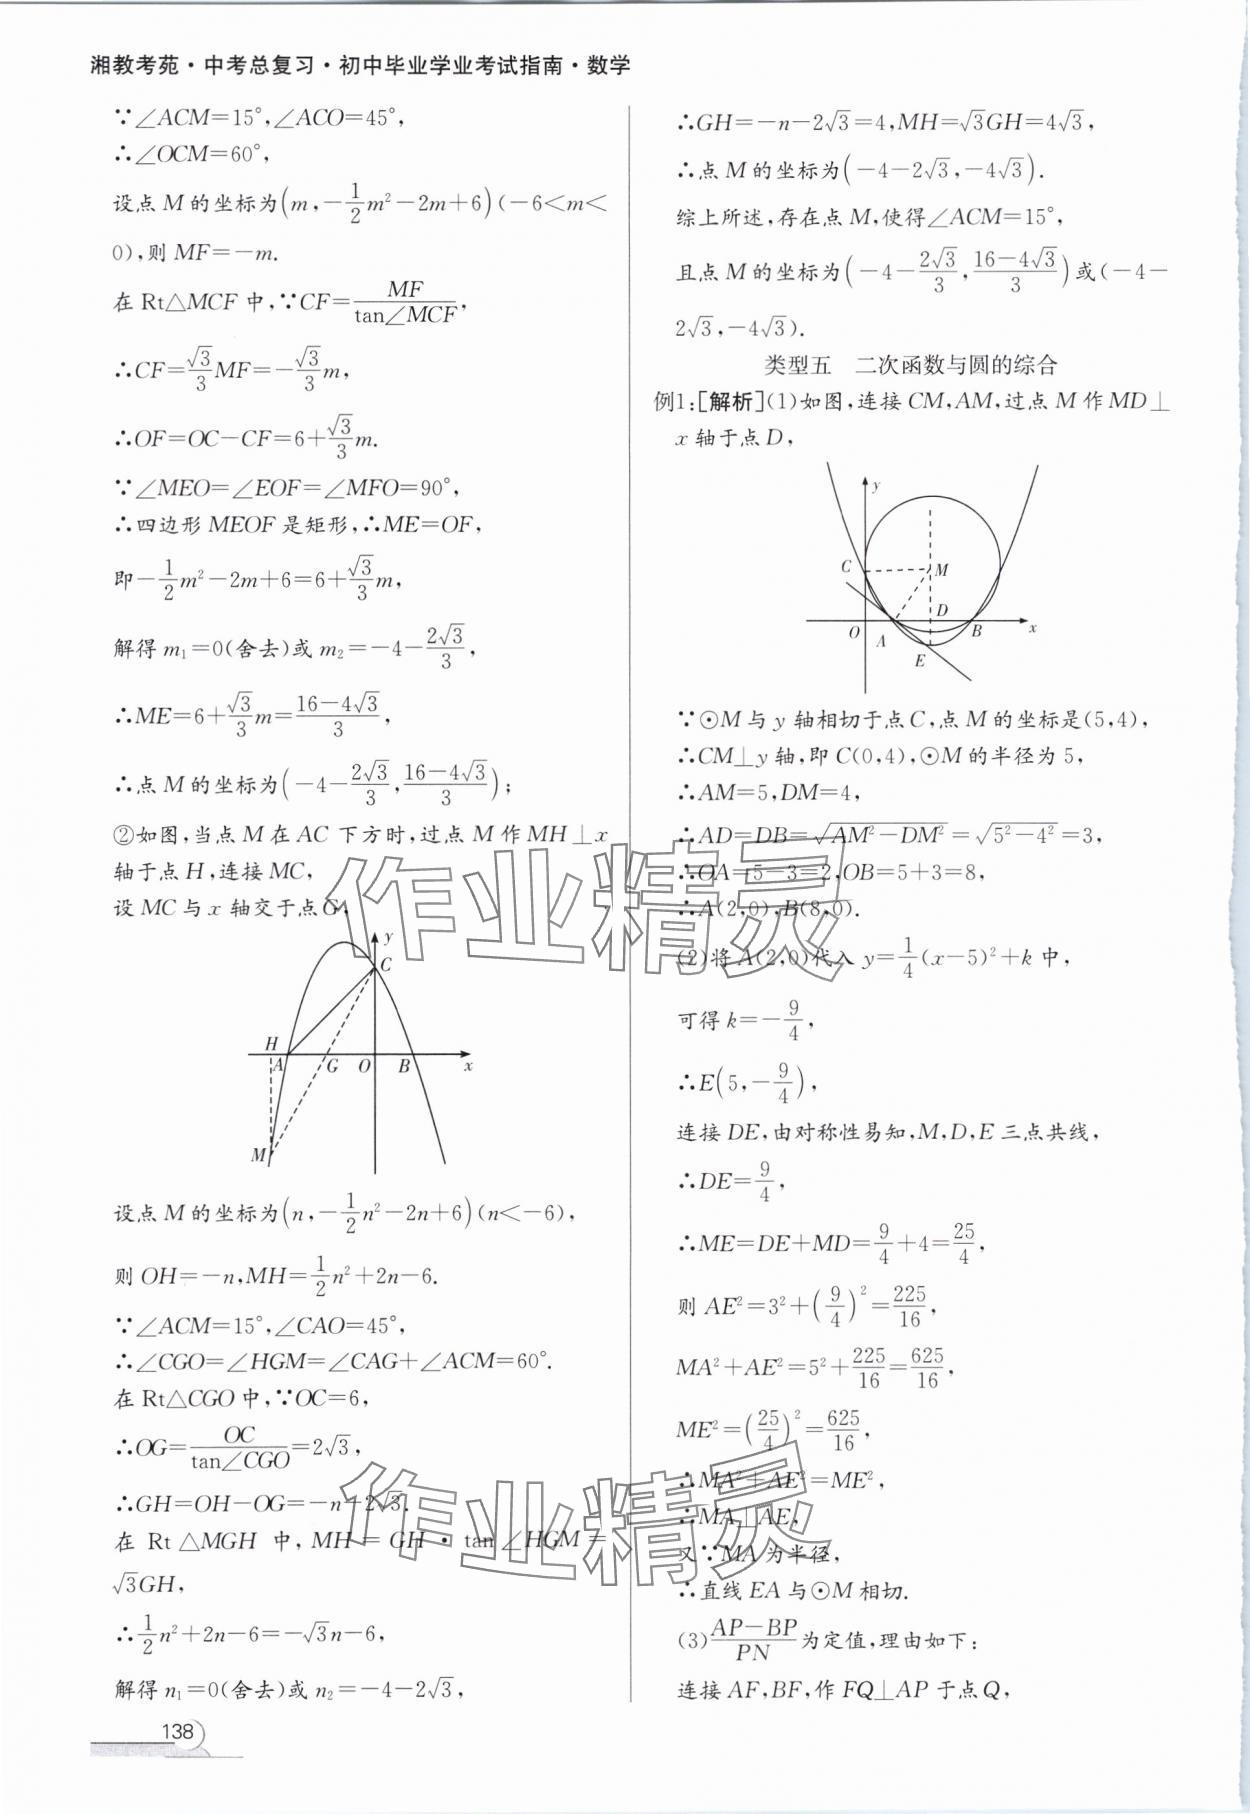 湘教考苑·中考总复习·初中毕业学业考试指南·数学
∵∠ACM=15°,∠ACO=45°,
∴∠OCM=60°,
设点 M 的坐标为(m,-1/2m²-2m+6)(-6<m<
0),则 MF=-m.
在 Rt△MCF 中,∵CF=MF/tan∠MCF,
∴CF=√3/3MF=-√3/3m,
∴OF=OC-CF=6+√3/3m.
∵∠MEO=∠EOF=∠MFO=90°,
∴四边形 MEOF 是矩形,∴ME=OF,
即-1/2m²-2m+6=6+√3/3m,
解得 m₁=0(舍去)或 m₂=-4-2√3/3,
∴ME=6+√3/3m=(16-4√3)/3,
∴点 M 的坐标为(-4-2√3/3,(16-4√3)/3);
②如图,当点 M 在 AC 下方时,过点 M 作 MH⊥x
轴于点 H,连接 MC,
设 MC 与 x 轴交于点 G,
y
C
H
A
G
O
B
x
M
设点 M 的坐标为(n,-1/2n²-2n+6)(n<-6),
则 OH=-n,MH=1/2n²+2n-6.
∵∠ACM=15°,∠CAO=45°,
∴∠CGO=∠HGM=∠CAG+∠ACM=60°.
在 Rt△CGO 中,∵OC=6,
∴OG=OC/tan∠CGO=2√3,
∴GH=OH-OG=-n-2√3.
在 Rt △MGH 中, MH = GH · tan ∠HGM =
√3GH,
∴1/2n²+2n-6=-√3n-6,
解得 n₁=0(舍去)或 n₂=-4-2√3,
138
∴GH=-n-2√3=4,MH=√3GH=4√3,
∴点 M 的坐标为(-4-2√3,-4√3).
综上所述,存在点 M,使得∠ACM=15°,
且点 M 的坐标为(-4-2√3/3,(16-4√3)/3)或(-4-
2√3,-4√3).
类型五 二次函数与圆的综合
例1:[解析](1)如图,连接 CM,AM,过点 M 作 MD⊥
x 轴于点 D,
y
C
M
D
O
A
B
x
E
∵⊙M 与 y 轴相切于点 C,点 M 的坐标是(5,4),
∴CM⊥y 轴,即 C(0,4),⊙M 的半径为 5,
∴AM=5,DM=4,
∴AD=DB=√(AM²-DM²)=√(5²-4²)=3,
∴OA=5-3=2,OB=5+3=8,
∴A(2,0),B(8,0).
(2)将 A(2,0)代入 y=1/4(x-5)²+k 中,
可得 k=-9/4,
∴E(5,-9/4),
连接 DE,由对称性易知,M,D,E 三点共线,
∴DE=9/4,
∴ME=DE+MD=9/4+4=25/4,
则 AE²=3²+(9/4)²=225/16,
MA²+AE²=5²+225/16=625/16,
ME²=(25/4)²=625/16,
∴MA²+AE²=ME²,
∴MA⊥AE,
又∵MA 为半径,
∴直线 EA 与⊙M 相切.
(3)(AP-BP)/PN为定值,理由如下:
连接 AF,BF,作 FQ⊥AP 于点 Q,
作业精灵
作业精灵